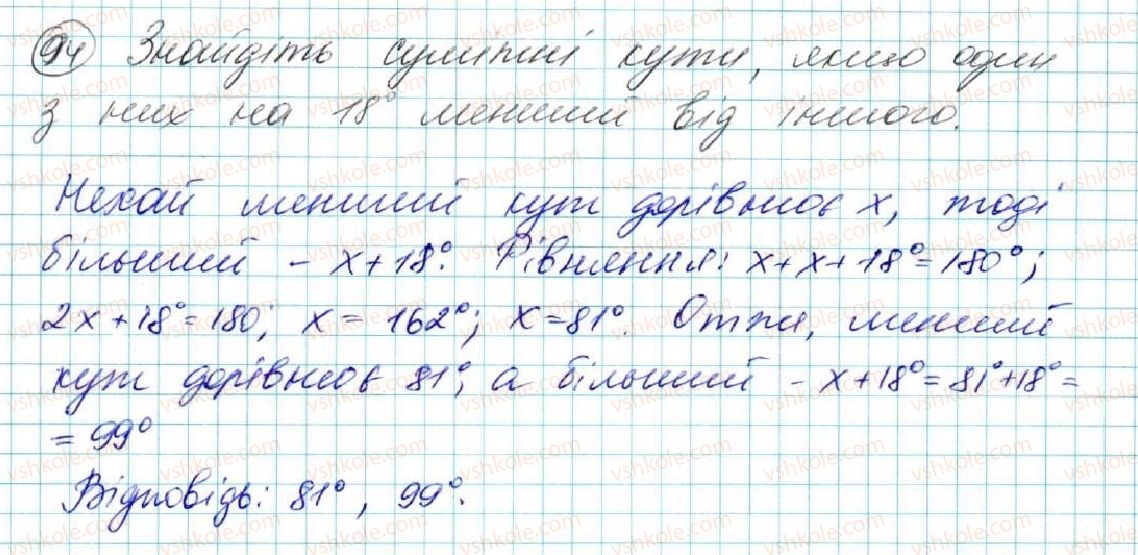 94 Знайдіть суміжні кути, якщо один
з них на 18° менший від іншого.
Нехай менший кут дорівнює x, тоді
більший - x+18°. Рівняння: x+x+18°=180°;
2x+18°=180; x = 162°; x=81°. Отже, менший
кут дорівнює 81°, а більший - x+18°=81°+18°=
= 99°
Відповідь: 81°, 99°.